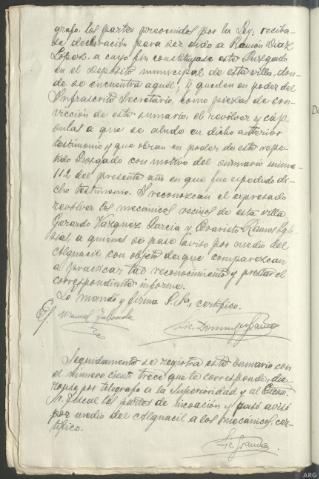 grafo los partes prevenidos por la Ley, reciba-
se declaración para ser oido a Ramon Diaz
Lopez, a cuyo fin constituyase este Juzgado
en el Depósito municipal de esta villa, don-
de se encuentra aquel; y queden en poder del
Infrascrito Secretario, como piezas de con-
vicción de este sumario, el revolver y cáp-
sulas a que se alude en dicho anterior
testimonio y que obran en poder de este repe-
tido Juzgado con motivo del sumario núme-
112 del presente año en que fue expedido di-
cho testimonio. Y reconozcan el expresado
revolver los mecánicos vecinos de esta villa
Gerardo Vazquez Garcia y Evaristo Ramos
a quienes se pase aviso por medio del
Alguacil con objeto de que comparezcan
a practicar tal reconocimiento y prestar el
correspondiente informe.
Lo mandó y firma S. Sª, certifico.
Manuel
Lic. Domingo
Seguidamente se registra este sumario con
el número ciento trece que le corresponde, di
por telegrafo a la Superioridad y al Excmo.
Sr. Fiscal los partes de incoación y pasó aviso
por medio del Alguacil a los mecánicos, cer-
tifico.
ARG